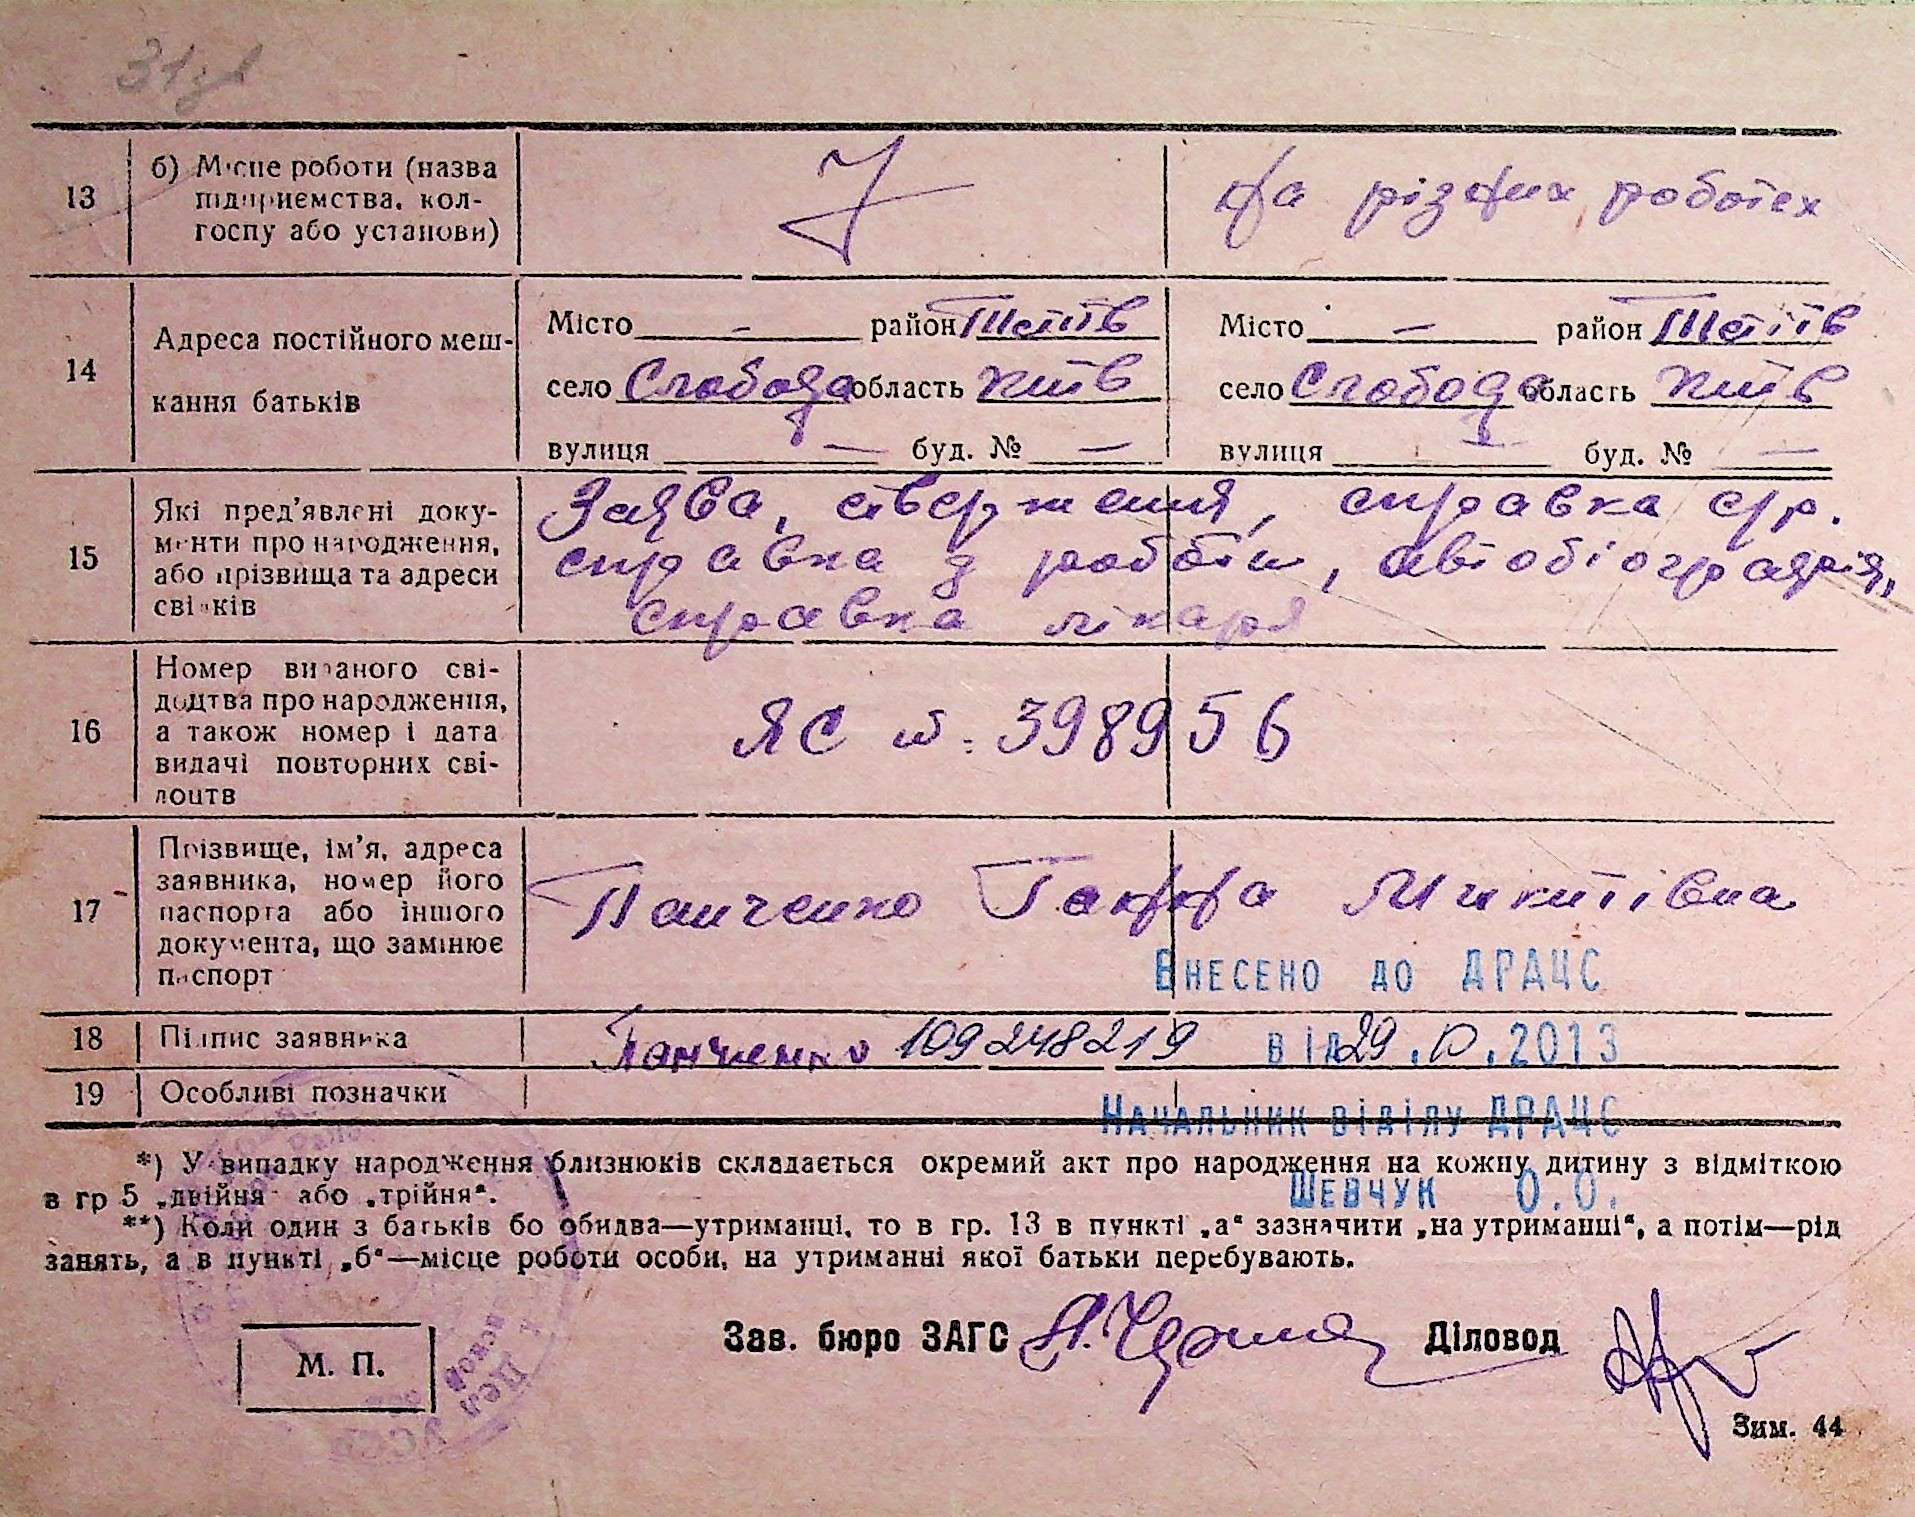 31
13 б) Місце роботи (назва підприємства, колгоспу або установи) На різних роботах
14 Адреса постійного мешкання батьків
Місто — район Тетіїв Місто — район Тетіїв
село Слобода область Київ село Слобода область Київ
вулиця — буд. № — вулиця — буд. № —
15 Які пред'явлені документи про народження, або прізвища та адреси свідків
Заява, ствердження, справка с/р.
справка з роботи, автобіографія,
справка лікаря
16 Номер виданого свідоцтва про народження, а також номер і дата видачі повторних свідоцтв
ЯС № 398956
17 Прізвище, ім'я, адреса заявника, номер його паспорта або іншого документа, що замінює паспорт
Панченко Ганна Микитівна
Внесено до ДРАЦС
18 Підпис заявника Панченко 109248219 від 29. .2013
19 Особливі позначки
Начальник відділу ДРАЦС
*) У випадку народження близнюків складається окремий акт про народження на кожну дитину з відміткою
Шевчук О.О.
в гр 5 „двійня" або „трійня".
**) Коли один з батьків бо обидва—утриманці, то в гр. 13 в пункті „а" зазначити „на утриманні", а потім—рід
занять, а в пункті „б"—місце роботи особи, на утриманні якої батьки перебувають.
Зав. бюро ЗАГС Діловод
М. П.
Зим. 44